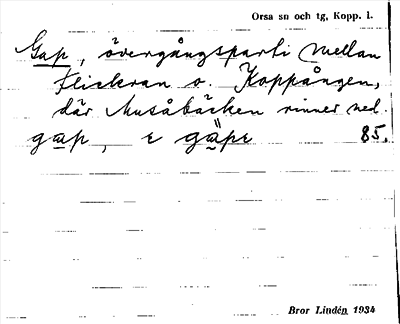 Orsa sn och tg, Kopp. l.
Gap, övergångsparti mellan
Flickran o. Koppången,
där Musåbäcken rinner ned.
gap, r gäpr 85.
Bror Lindén 1934